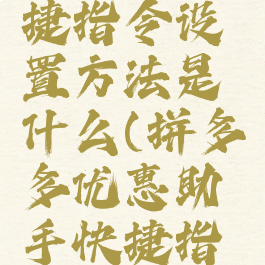 捷指令设
置方法是
什么(拼多
多优惠助
手快捷指